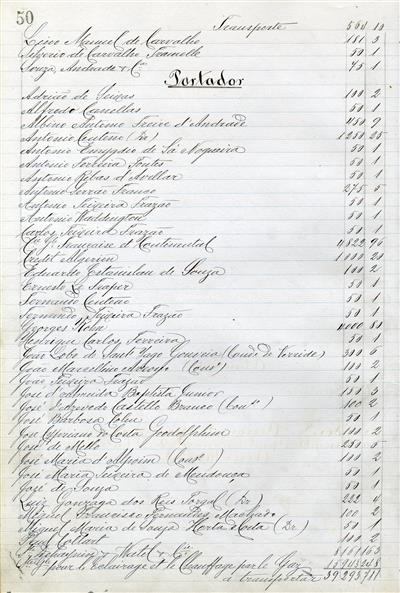 50
Transporte 564 10
Lino Manuel de Carvalho 151 3
de Carvalho 50 1
Souza, Andrade & Cia 75 1
Portador
Adrião de Seixas 100 2
Alfredo 50 1
Albino Antonio Freire d'Andrade 450 9
Antonio Centeno (Dr) 1250 25
Antonio Emygdio de Sá Nogueira 50 1
Antonio Ferreira Fontes 50 1
Antonio Ribas d'Avellar 50 1
Antonio Serrão Franco 275 5
Antonio Teixeira Frazão 50 1
Antonio Waddington 50 1
Carlos Teixeira Frazão 50 1
Française et Continental 4822 96
Credit Algerien 1000 20
Eduardo Estanislau de Souza 100 2
Ernest 50 1
Fernando Centeno 50 1
Fernando Teixeira Frazão 50 1
Georges Kohn 4000 80
Henrique Carlos Ferreira 50 1
João Lobo de Sant'Yago Gouveia (Conde de Verride) 300 6
João Marcellino (Consº) 100 2
João Teixeira Frazão 50 1
José d'Almeida Baptista Junior 3
José d'Azevedo Castello Branco (Consº) 100 2
José Barbosa 50 1
José Cypriano da Costa Goodolphim 100 2
José de Mello 250 5
José Maria d'Alpoim (Consº) 100 2
José Maria Teixeira de Mendonça 50 1
José de Souza 50 1
Luiz Gonzaga dos Reis Torgal (Dr) 222 4
Francisco Fernandes Machado 100 2
Miguel Maria de Souza Horta e Costa (Dr) 50 1
Collart 100 2
& Cia 8161 163
pour l'Eclairage et le Chauffage par le Gaz
a transportar